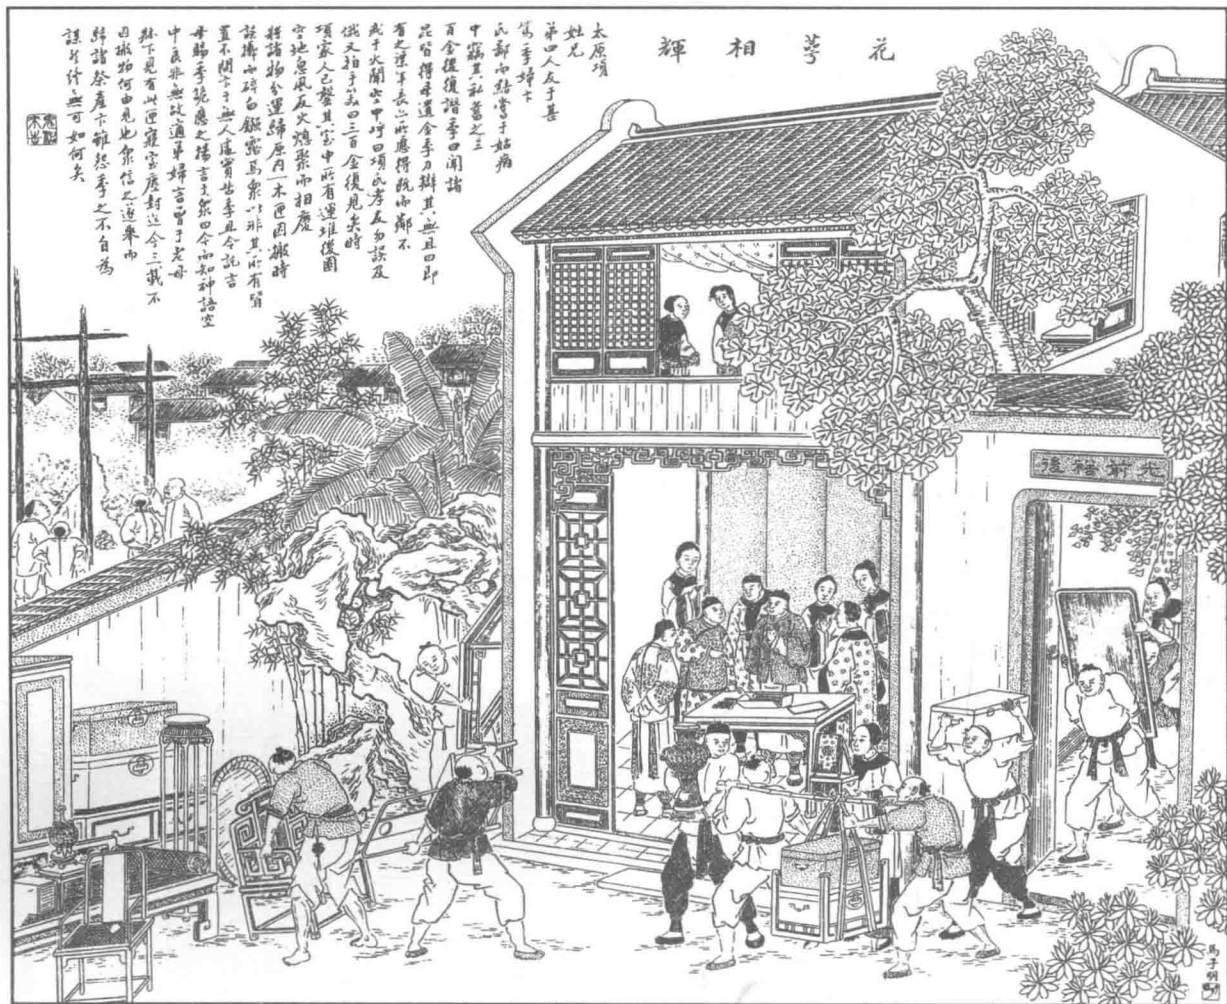 花萼相輝
太原項
姓兄
弟四人友于甚
篤季婦卞
氏鄙而黠當于姑病
中竊其私蓄之三
百金後復譖季曰聞諸
昆皆得母遺金季力辯其無且曰即
有之諸年長亦所應得既而鄰不
戒于火聞空中呼曰項氏孝友勿誤及
俄又拍手笑曰三百金復見矣時
項家人已罄其室中所有運堆後園
空地忽風反火熄衆而相慶
將諸物分運歸原內一木匣因搬時
誤撞而碎白鏹露焉衆以非其所有皆
置不問卞于無人處實告季且令託言
母賜季詭應之揚言于衆曰今而知神語空
中良非無故適弟婦言曾于老母
牀下見有此匣室塵封迄今三載不
因搬何由見也衆信之遂舉而
歸諸祭產卞雖怨季之不自為
謀終無可如何矣
花前後
馬子明